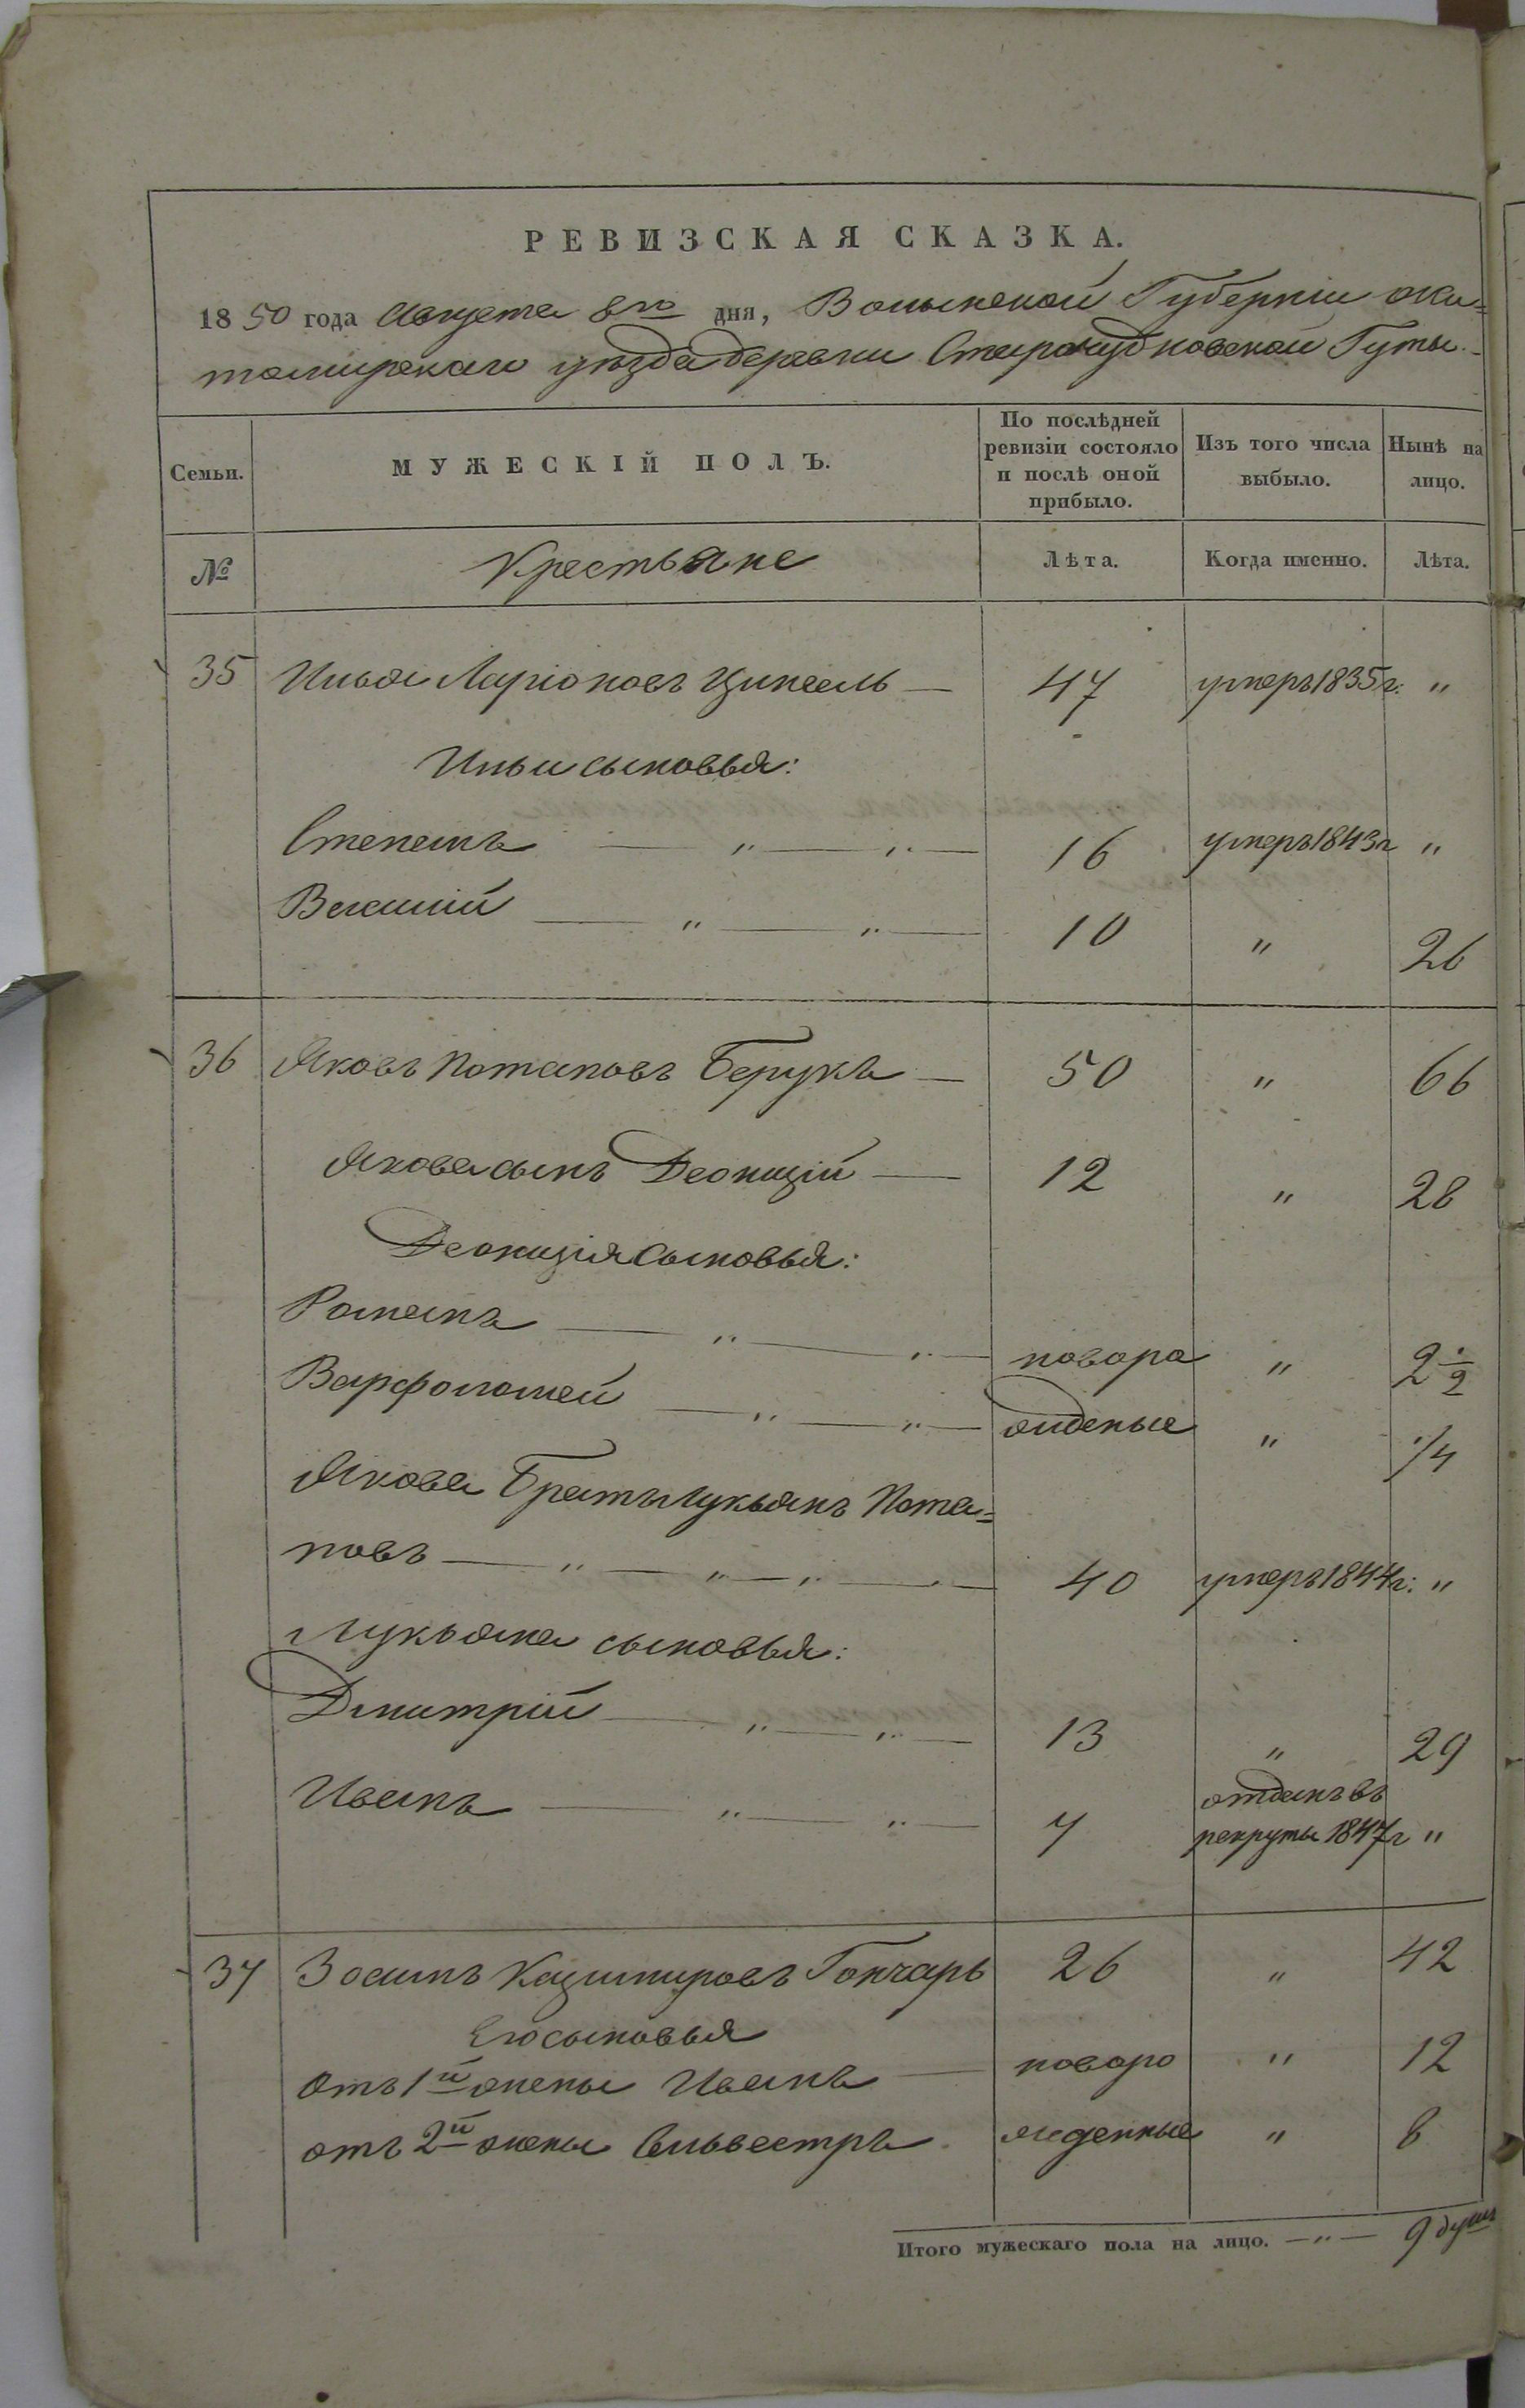 РЕВИЗСКАЯ СКАЗКА.
1850 года Августа 8го дня, Волынской Губерніи жи=
томирскаго уѣзда деревни Старочудновской Гуты.
Семьи. МУЖЕСКІЙ ПОЛЪ. По послѣдней ревизіи состояло и послѣ оной прибыло. Изъ того числа выбыло. Нынѣ на лицо.
№ Крестьяне Лѣта. Когда именно. Лѣта.
35 Илья Ларіоновъ — 47 умеръ 1835 г: "
Ильи сыновья:
Степанъ — " — " — 16 умеръ 1843 г "
Василій — " — " — 10 " 26
36 Яковъ Потаповъ Берукъ — 50 " 66
Якова сынъ Деонизій — 12 " 28
Деонизія сыновья:
Романъ — " — " — новоро " 2 1/2
Варфоломей — " — " — жденые " 1/4
Якова Братъ Лукьянъ Пота=
повъ — " — " — " — " — 40 умеръ 1844 г: "
Лукьяна сыновья:
Дмитрій — " — " — 13 " 29
Иванъ — " — " — 7 отданъ въ
рекруты 1847 г "
37 Зосимъ Казимировъ Гончаръ 26 " 42
Его сыновья
Отъ 1й жены Иванъ — новоро " 12
отъ 2й жены Сильвестръ жденные " 8
Итого мужескаго пола на лицо. — " — 9 душъ